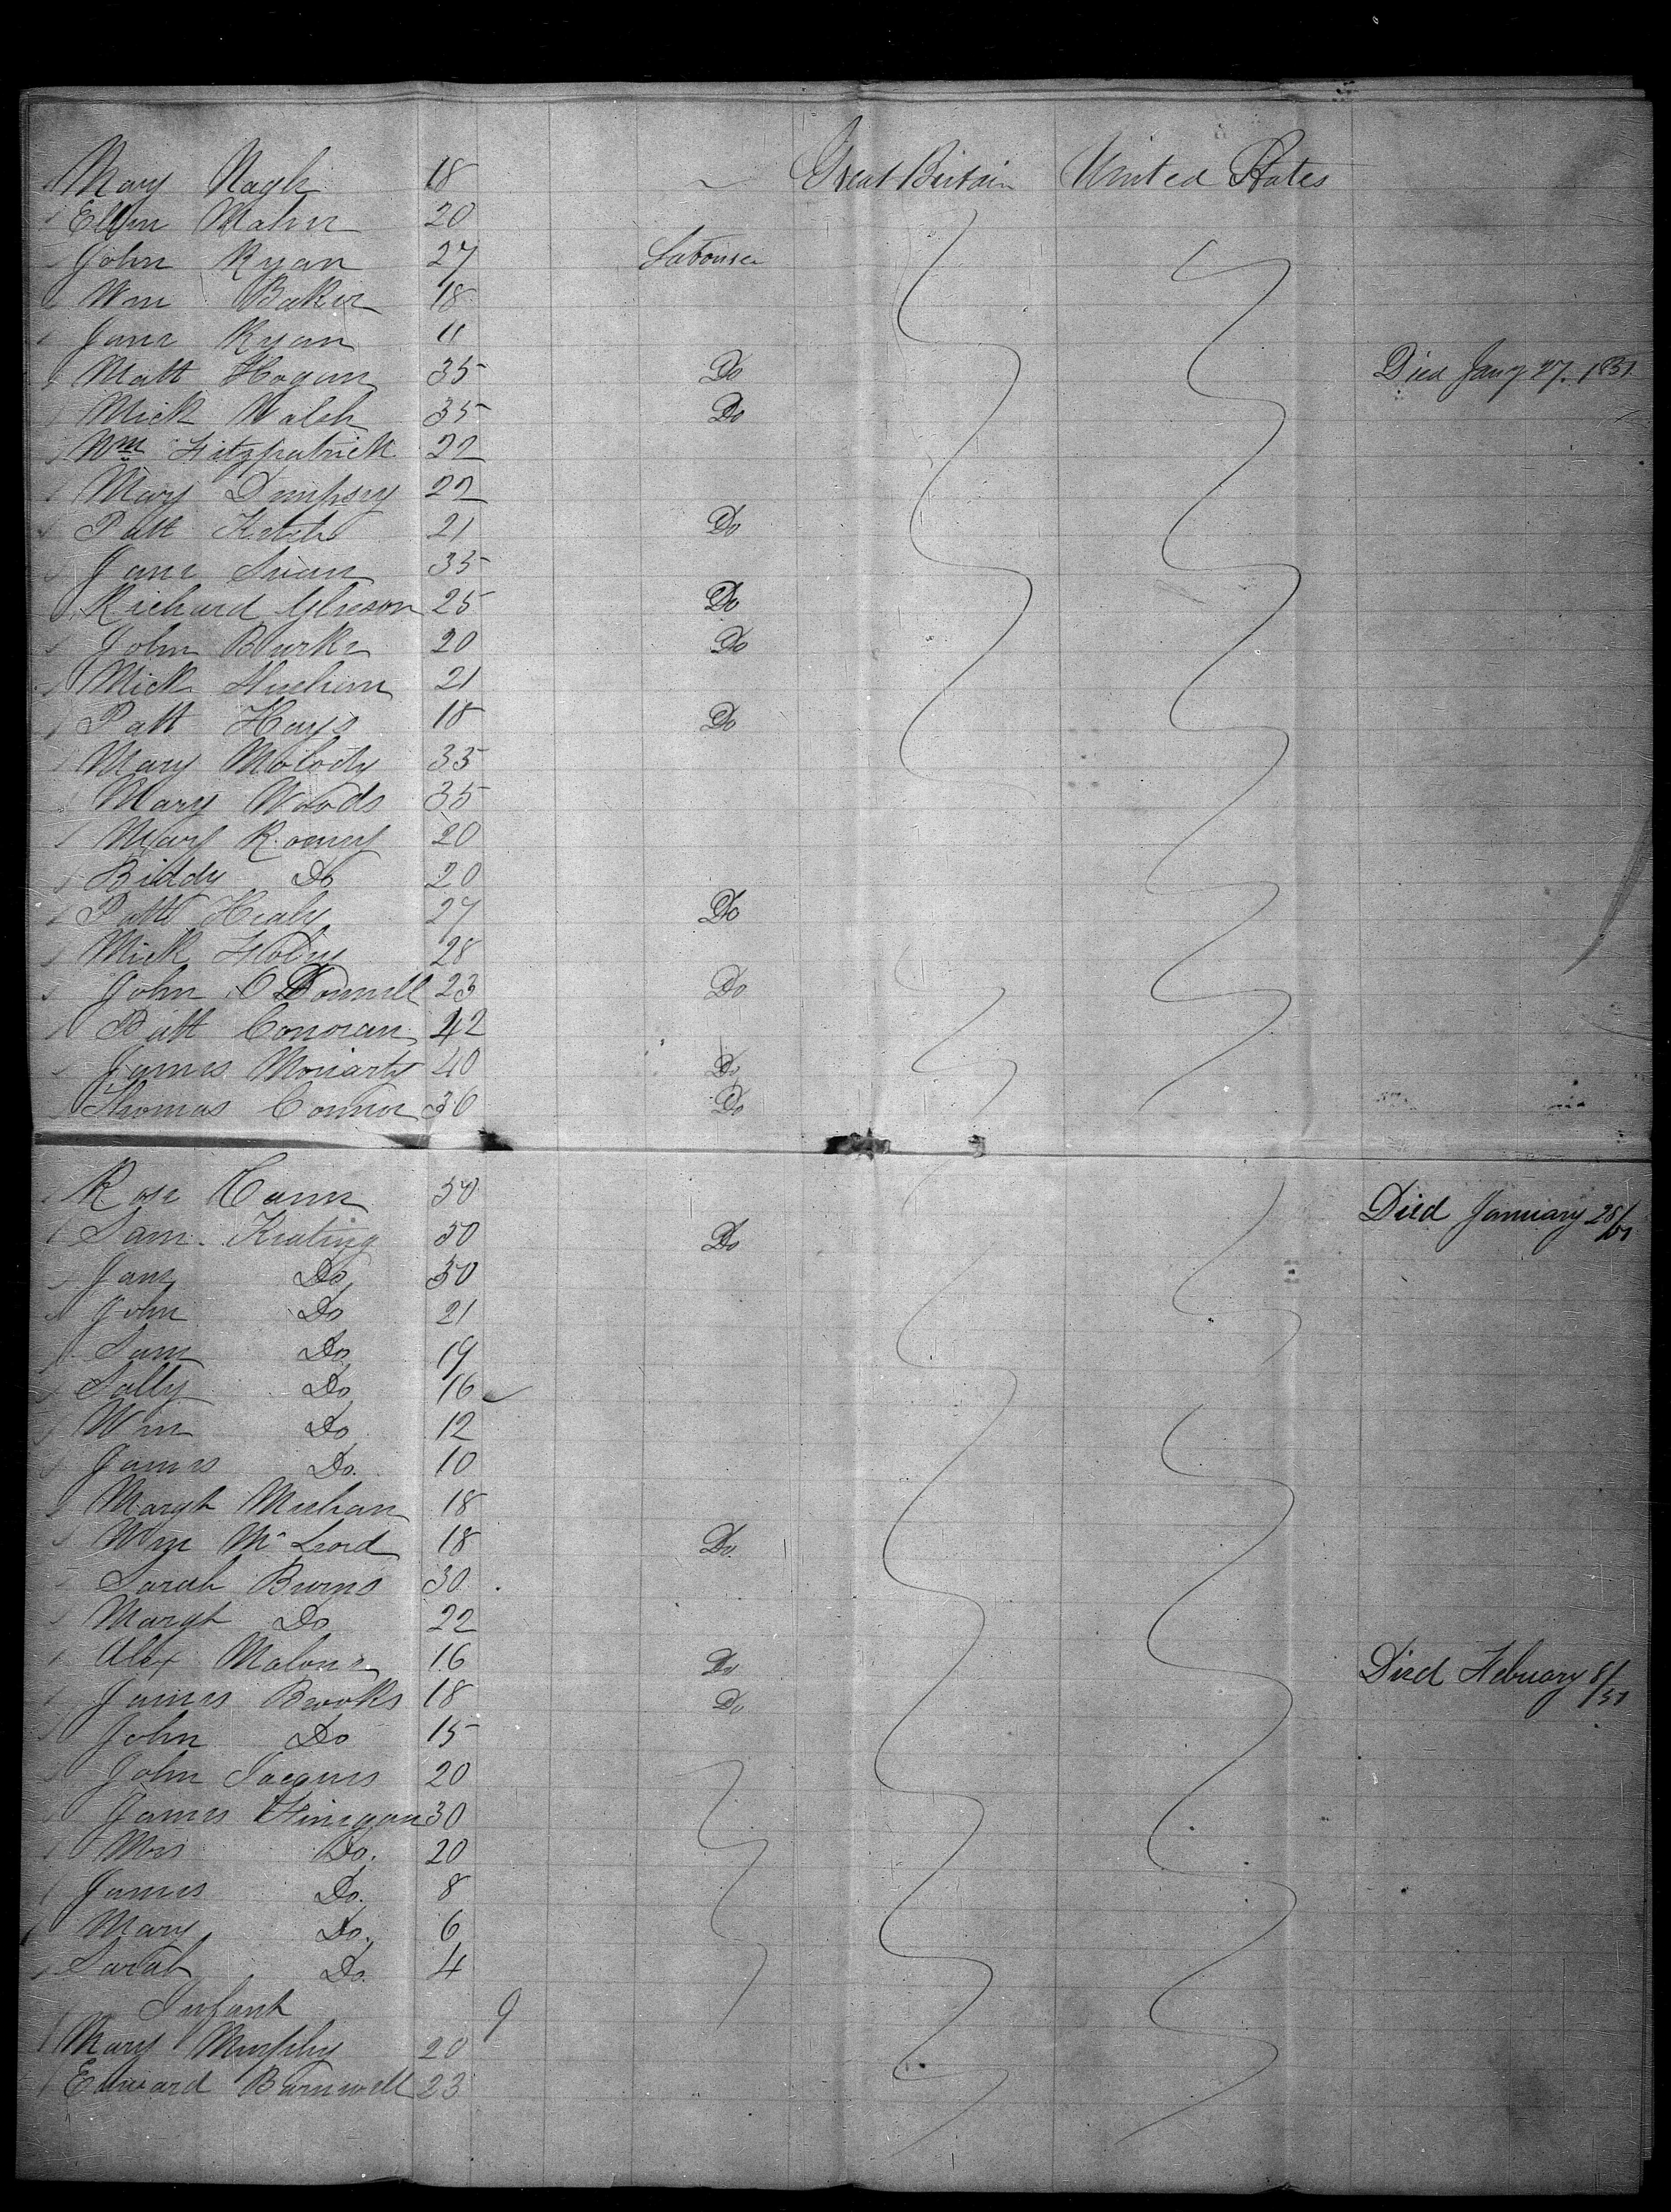 Mary Nagle 18 Great Britain United States
Ellen Mahn 20
John Ryan 27 Labourer
Wm Baker 18
Jane Ryan 11
Matt Hogan 35 Do Died Jany 27. 1851
Mick Walsh 35 Do
Wm Fitzpatrick 22
Mary Dempsey 22
Patt 21 Do
Jane 35
Richard Gleeson 25 Do
John Burke 20 Do
Mick 21
Patt Hays 18 Do
Mary Molody 35
Mary Woods 35
Mary Rooney 20
Biddy Do 20
Patt Healy 27 Do
Mick 28
John O Donnell 23 Do
Patt Conoran 42
James Moriarty 40 Do
Thomas Connor 30 Do
Rose Cann 50
Sam. Keating 50 Do Died January 28/51
Jane Do 50
John Do 21
Sam Do 19
Sally Do 16
Wm Do 12
James Do. 10
Margt Meehan 18
Wm McLeod 18 Do.
Sarah Burns 30
Margt Do 22
Alex Malone 16 Do Died Febuary 8/51
James Brooks 18 Do
John Do 15
John Jacques 20
James Finegan 30
Mrs Do. 20
James Do. 8
Mary Do. 6
Sarah Do. 4
Infant 9
Mary Murphy 20
Edward Barnwell 23